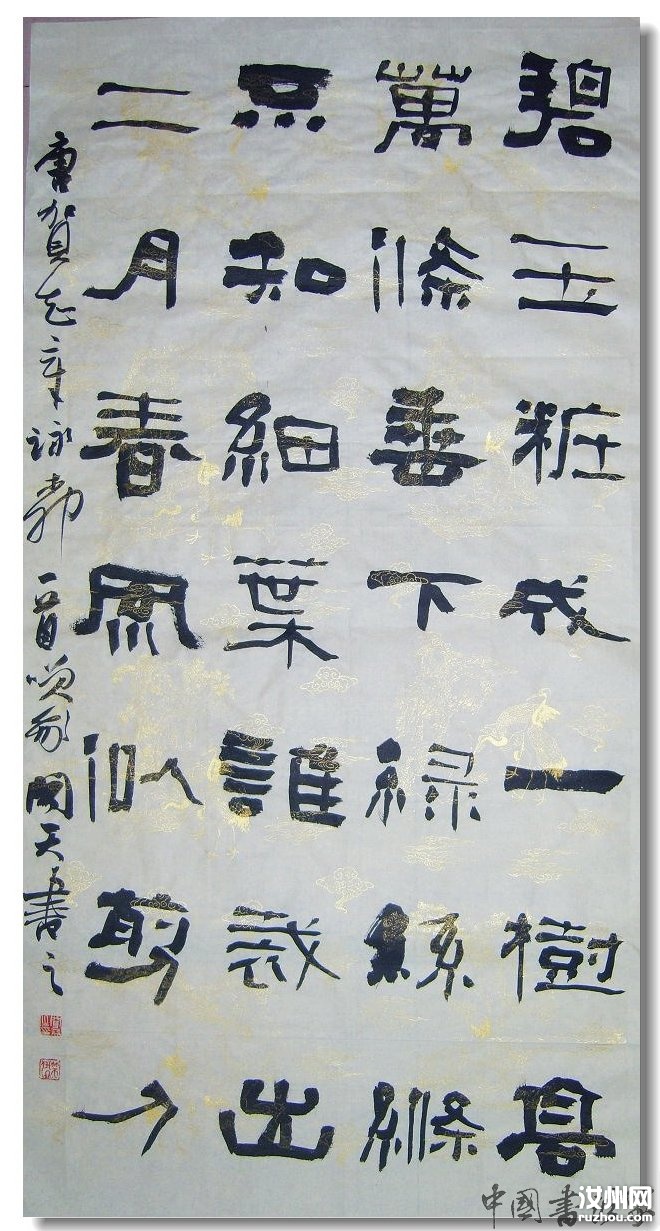 碧玉粧成一樹高
萬條垂下綠絲縧
不知細葉誰裁出
二月春風似剪刀
唐賀知章詠柳一首 天書之
中國書
汝州网
ruzhou.com